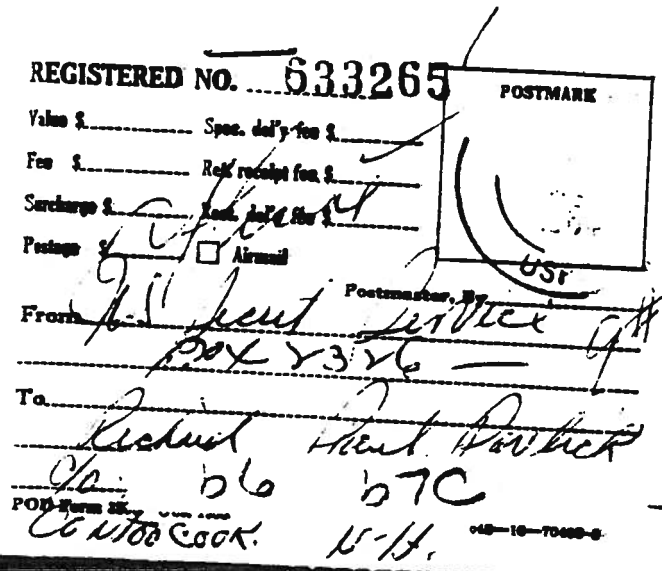 REGISTERED NO. 633265
POSTMARK
Value $ Spec. del'y fee $
Fee $ Ret. receipt fee $
Surcharge $ Rest. del'y fee $
Postage $ Airmail
Postmaster, By
From U.S. Secret Service
Box 2326 —
To
Richard Paul Pavlick
c/o b6 b7C
POD Form
Contoocook. N-H.